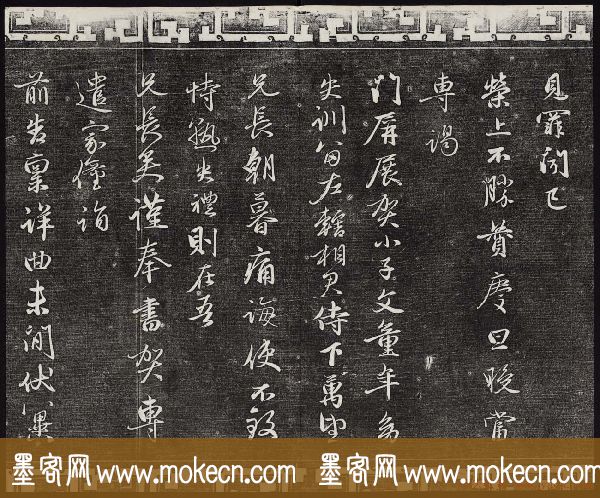 見罪聞已
榮上不勝贊慶旦晚當
專謁
門屏展賀小子文童年
失訓
左轄相見侍下萬
兄長朝暮痛誨使不致
恃
失禮則在吾
兄長矣謹奉書賀專
遣家僮詣
前告稟詳曲未間伏冀
墨客网 www.mokecn.com 墨客网 www.mokecn.com